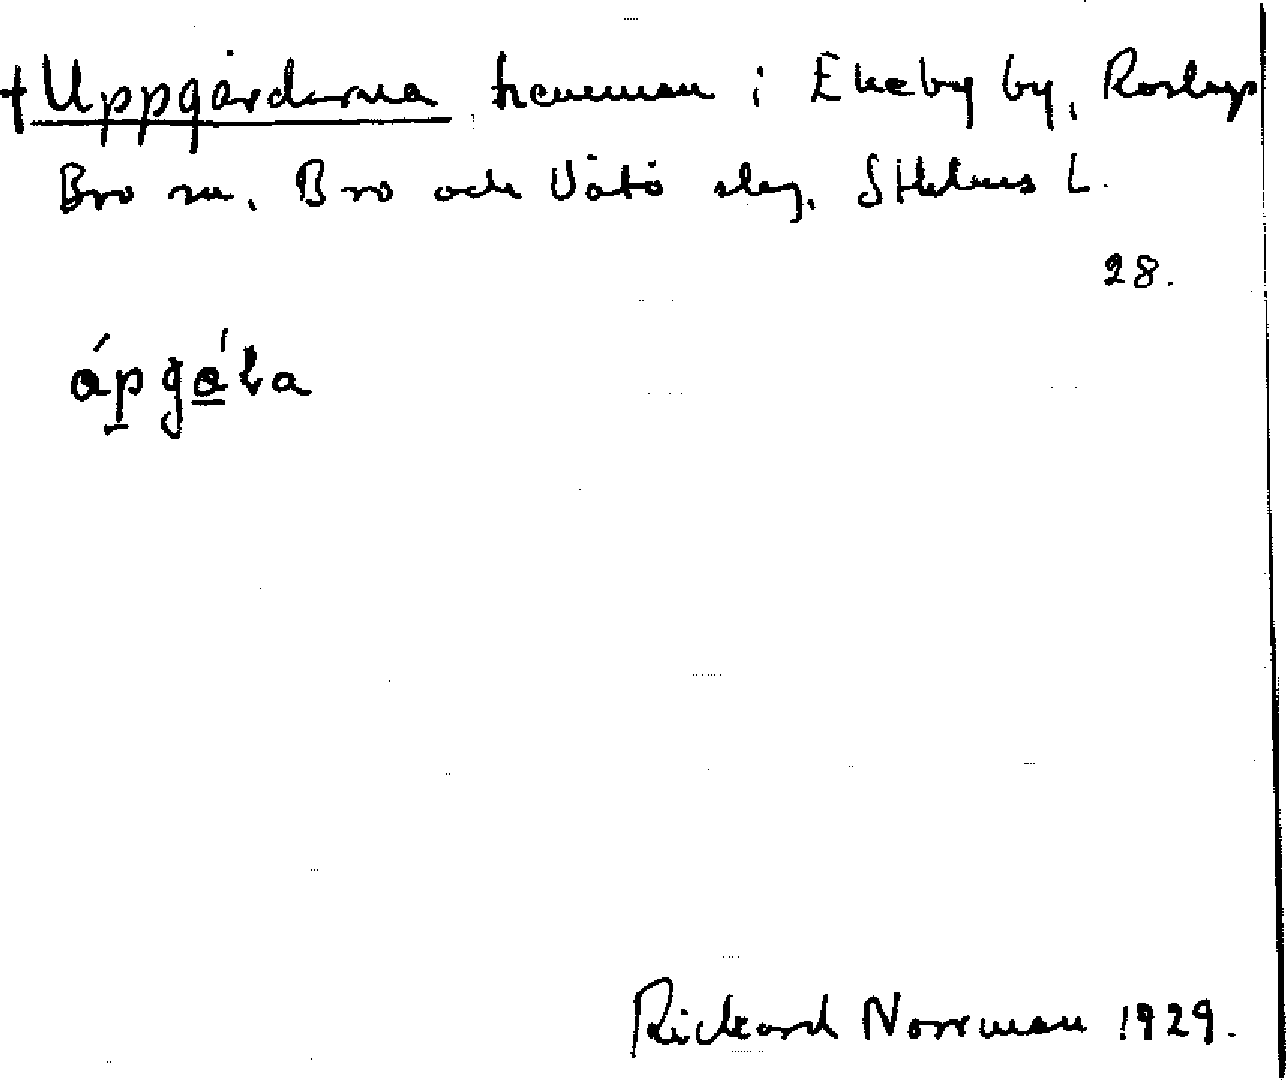 † Uppgårdarna hemman i Ekeby by,
Bro sn. Bro och Vätö slg. Sthlms L.
28.
Rickard Norrman 1929.